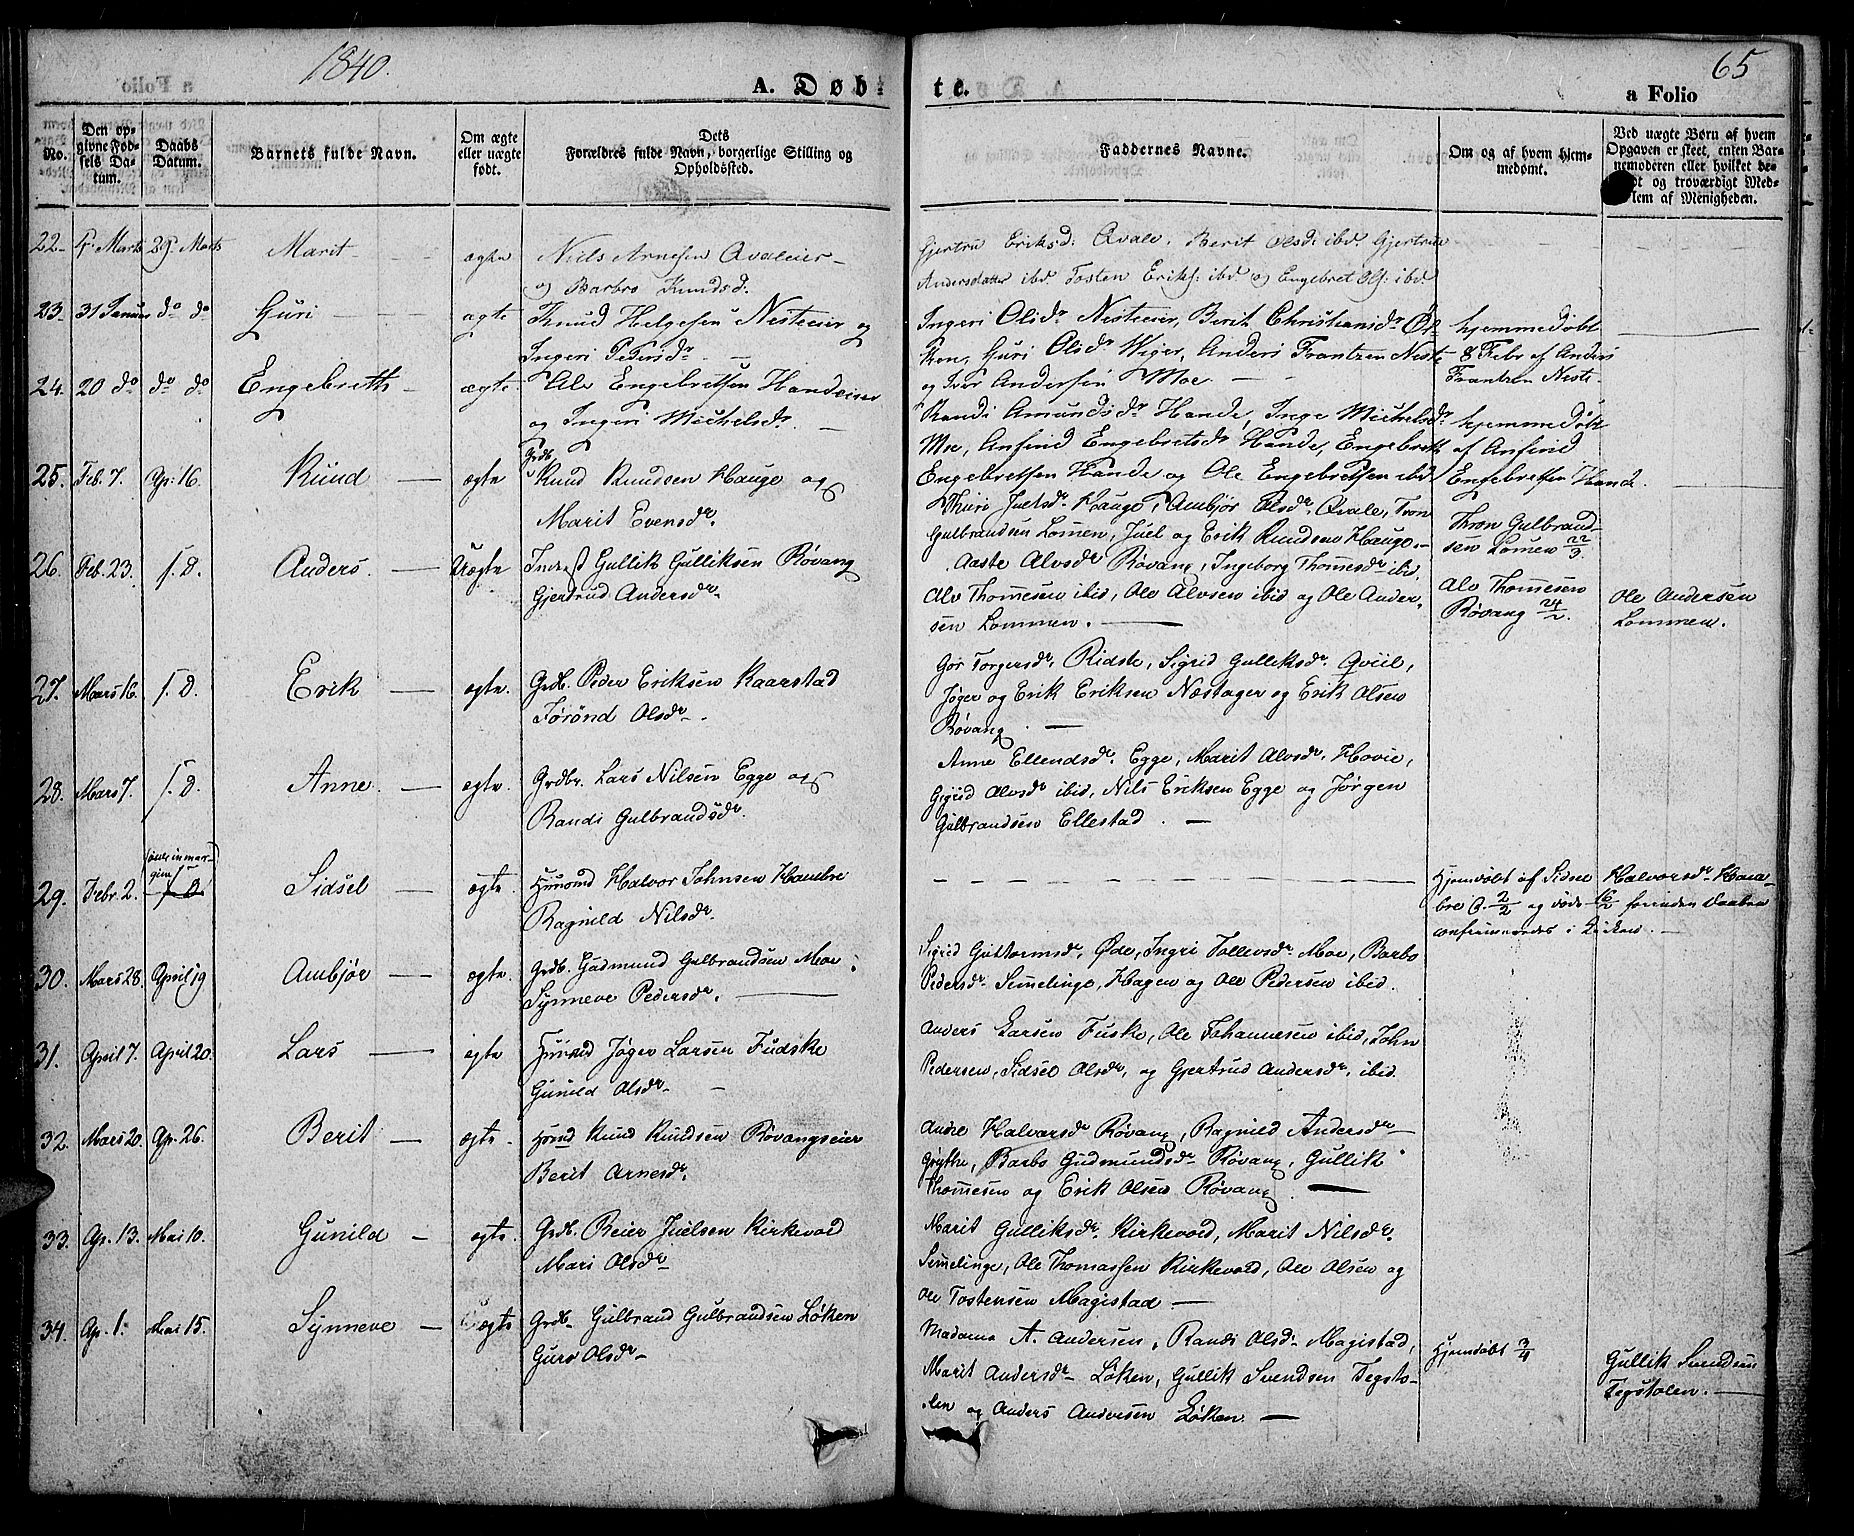 1840.
65
A. Døb-
te.
a Folio
No.
Den op-
givne Fød-
sels Da-
tum.
Daabs
Datum.
Barnets fulde Navn.
Om ægte
eller uægte
født.
Dets
Forældres fulde Navn, borgerlige Stilling og
Opholdssted.
Faddernes Navne.
Om og af hvem hjem-
medømt.
Ved uægte Børn af hvem
Opgaven er skeet, enten Bar-
nemoderen eller hvilket
og troværdigt Med-
lem af Menigheden.
22. Marts 29. Marts Marit ægte Niels Arnesen Qvaleeier
og Barbro Knudsd.
Gjertru Eriksd: Qvale, Berit Olsd: ibd. Gjertrue
Andersdatter ibd. Tosten Eriks: ibd og Engebret Ols: ibd.
23. 31 Januar do do Guri ægte Knud Helgesen Nesteeier og
Ingeri Pedersdr.
Ingeri Olsdr Nesteeier, Berit Christiansdr
Guri Olsdr Wiger, Anders Frantzen Neste
og Iver Andersen Moe
hjemmedøbt
8 Febr af Anders
Frantzen Neste.
24. 20 do do do Engebreth ægte Ole Engebretsen Handeeier
og Ingeri Michelsdr.
Randi Amundsdr Hande, Inge Michelsdr
Moe, Anfind Engebretsdr Hande, Engebrett
Engebretsen Hande og Ole Engebretsen ibd
hjemmedøbt
af Anfind
Engebretsen Hande.
25. Feb. 7. Ap. 16. Knud ægte Grdb. Knud Knudsen Hauge og
Marit Evensdr.
Thuri Juelsdr. Hauge, Ambjør Olsdr. Qvale, Tron
Gulbrandsen Lomen, Juel og Erik Knudsen Hauge.
Thron Gulbrand-
sen Lomen 22/3.
26. Feb. 23. s. D. Anders. Uægte Inderst Gullik Gulliksen Røvang
Gjertrud Andersdr
Aaste Alvsdr Røvang, Ingeborg Thomesdr ibid.
Alv Thomesen ibid, Ole Alvsen ibid og Ole Ander-
sen Lommen.
Alv Thomesen
Røvang 24/2.
Ole Andersen
Lommen.
27. Mars 16. s. D. Erik ægte. Grdb. Peder Eriksen Kaarstad
Jørønd Olsdr.
Gør Torgersdr. Ridste, Sigrid Gulliksdr. Qviil,
Jøger og Erik Eriksen Næstager og Erik Olsen
Røvang
28. Mars 7. s. D. Anne. ægte. Grdbr. Lars Nilsen Egge og
Randi Gulbrandsdr.
Anne Ellendsdr. Egge, Marit Alvsdr. Hovie,
Sigrid Alvsdr ibid, Nils Eriksen Egge og Jørgen
Gulbrandsen Ellestad.
29. Febr. 2. Sidsel ægte. Huusmd Halvor Johnsen Hambre
Ragnild Nilsdr.
Hjemdøbt af Sidsel Halvorsdr. Ham-
bre D. 2/2 og døde 16/2 forinden Daaben
confirmeredes i Kirken.
30. Mars 28. April 19 Ambjør ægte. Grdb. Gudmund Gulbrandsen Moe
Synneve Pedersdr.
Sigrid Guttormsdr. Øde, Ingri Tollevsdr. Moe, Barbo
Pedersdr. Semelinge, Hagen og Ole Pedersen ibid.
31. April 7. April 20. Lars ægte Huusmd Jøger Larsen Fudske
Gunild Olsdr
Anders Larsen Fuske, Ole Johannesen ibid, John
Pedersen, Sidsel Olsdr, og Gjertrud Andersdr. ibid.
32. Mars 20. Ap. 26. Berit ægte. Huusmd Knud Knudsen Røvangseier
Berit Arnesdr.
Andre Halvorsdr Røvang, Ragnild Andersdr
Grythe, Barbo Gudmundsdr Røvang, Gullik
Thomesen og Erik Olsen Røvang.
33. Ap. 13. Mai 10. Gunild ægte. Grdb. Beier Juelsen Kirkevold
Mari Olsdr
Marit Gulliksdr. Kirkevold, Marit Nilsdr.
Semelinge, Ole Thomassen Kirkevold, Ole Olsen og
Ole Tostensen Magistad
34. Ap. 1. Mai 15. Synneve Uægte Grdb. Gulbrand Gulbrandsen Løken
Guro Olsdr
Madame A. Andersen, Randi Olsd. Magistad,
Marit Andersdr Løken, Gullik Svendsen Tegsto-
len og Anders Andersen Løken.
Hjemdøbt 3/4
Gullik Svendsen
Tegstolen.